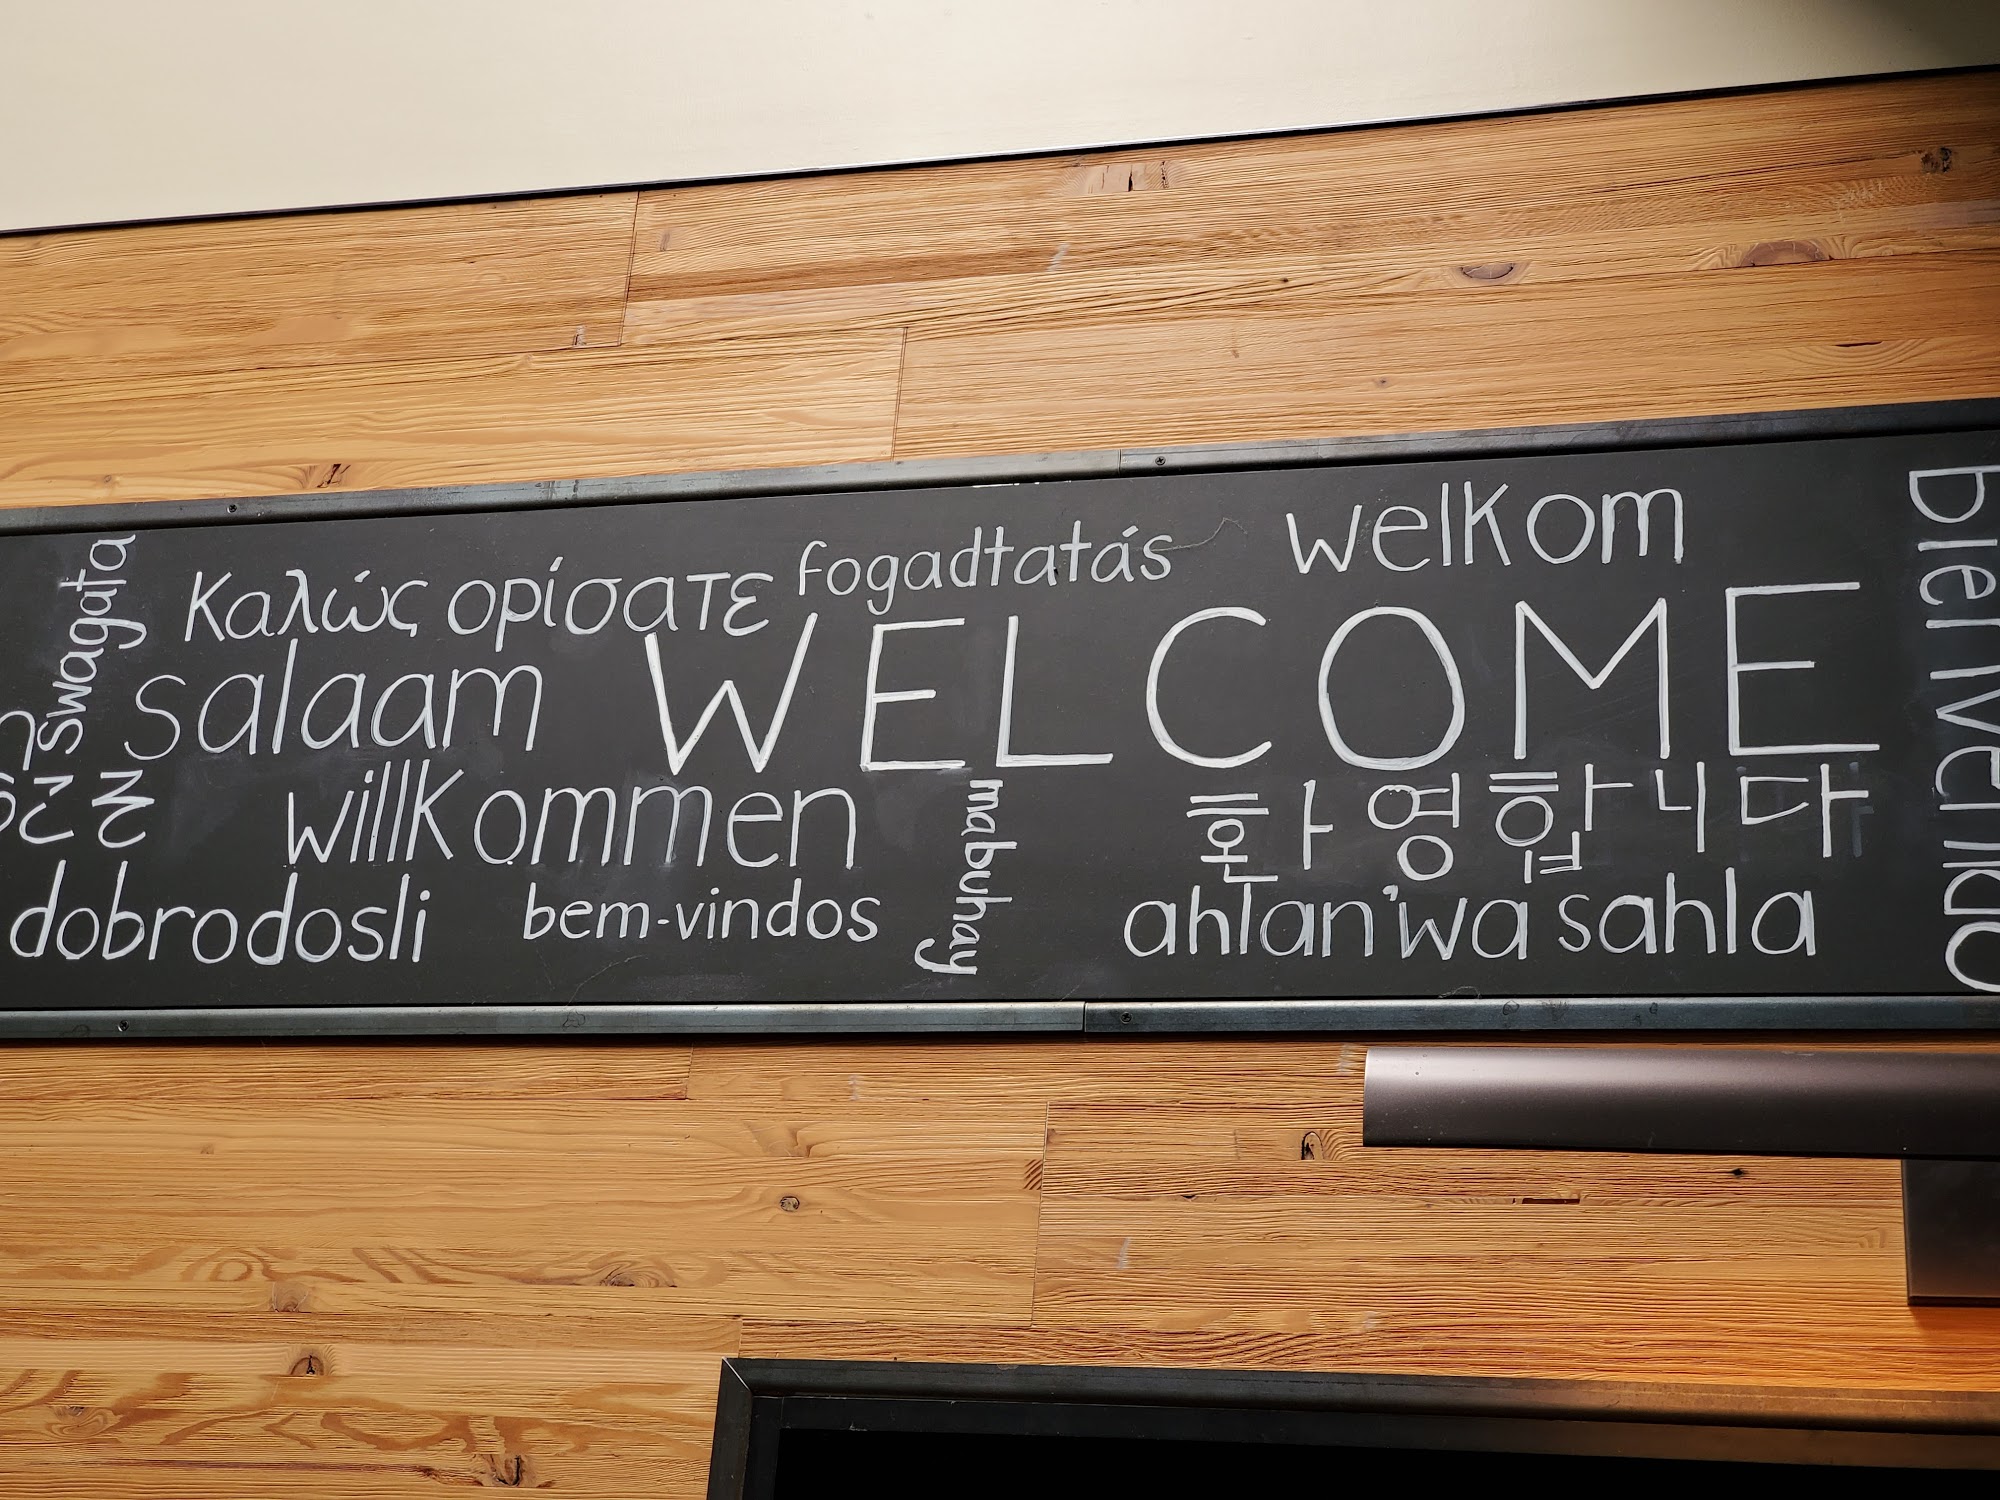 swagata
Καλώς ορίσατε
fogadtatás
welkom
salaam
WELCOME
willkommen
환영합니다
dobrodosli
bem-vindos
mabuhay
ahlan'wa sahla
bienvenido